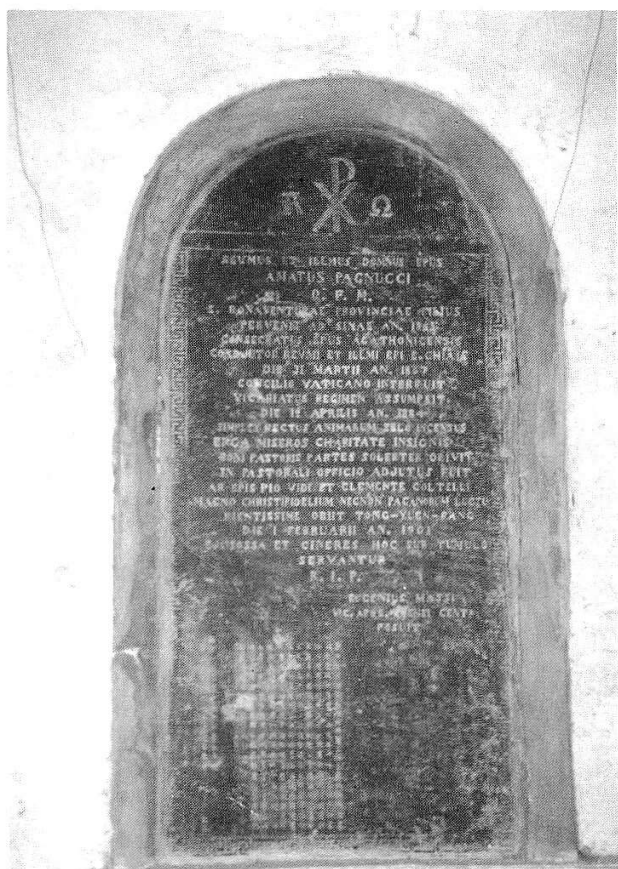 Α Ω
REVMUS ET ILLMUS DOMNUS EPUS
AMATUS PAGNUCCI
O. F. M.
S. BONAVENTURAE PROVINCIAE FILIUS
PERVENIT AD SINAS AN.
CONSECRATUS EPUS AGATHONICENSIS
COADJUTOR REVMI ET ILLMI EPI E. CHIAIS
DIE 31 MARTII AN. 1867
CONCILIO VATICANO INTERFUIT
VICARIATUS REGIMEN ASSUMPSIT
DIE APRILIS AN. 1884
SIMPLEX RECTUS ANIMARUM ZELO INCENSUS
ERGA MISEROS CHARITATE INSIGNIS
BONI PASTORIS PARTES SOLERTER OBIVIT
IN PASTORALI OFFICIO ADJUTUS FUIT
AB EPIS PIO VIDI ET CLEMENTE COLTELLI
MAGNO CHRISTIFIDELIUM NECNON PAGANORUM LUCTU
PIENTISSIME OBIIT TONG-YUEN-FANG
DIE 1 FEBRUARII AN. 1901
EJUS OSSA ET CINERES HOC SUB TUMULO
SERVANTUR
R. I. P.
EUGENIUS MASSI
VIC. APUS. CENTR
POSUIT